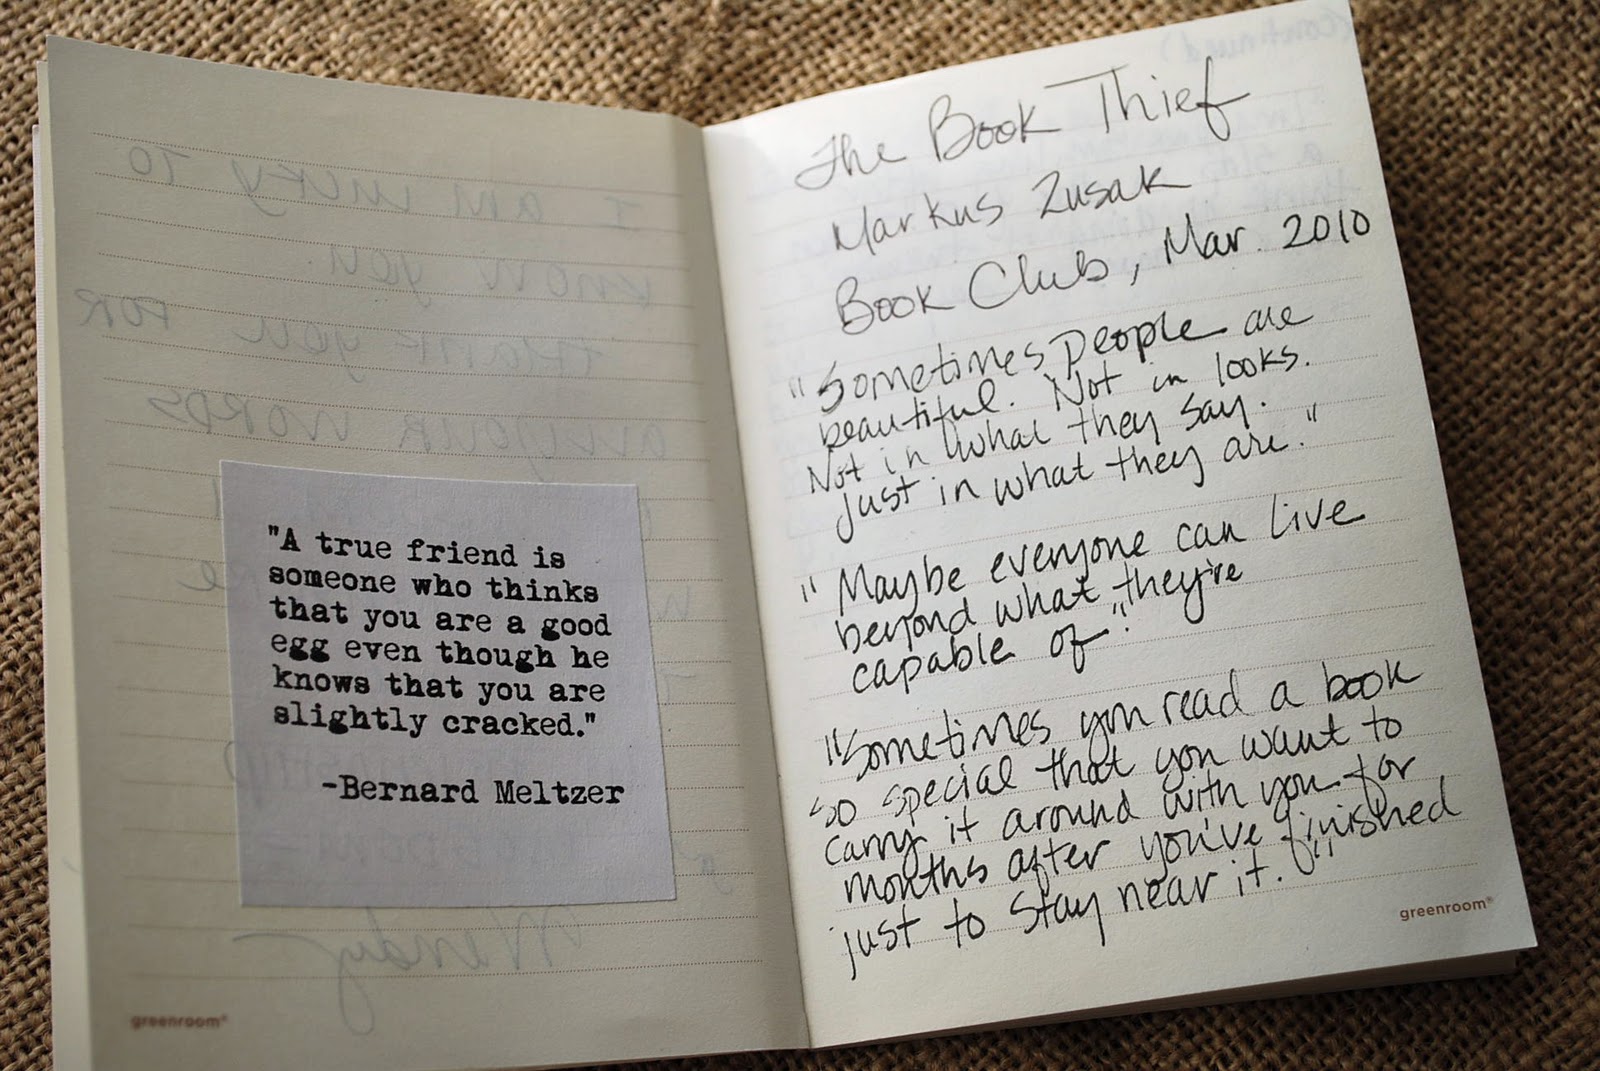 I am lucky to
know you.
thank you for
your words
"A true friend is
someone who thinks
that you are a good
egg even though he
knows that you are
slightly cracked."
-Bernard Meltzer
Wendy
greenroom®
(continued)
The Book Thief
Markus Zusak
Book Club, Mar. 2010
"Sometimes people are
beautiful. Not in looks.
Not in what they say.
Just in what they are."
"Maybe everyone can live
beyond what they're
capable of."
"Sometimes you read a book
so special that you want to
carry it around with you for
months after you've finished
just to stay near it."
greenroom®